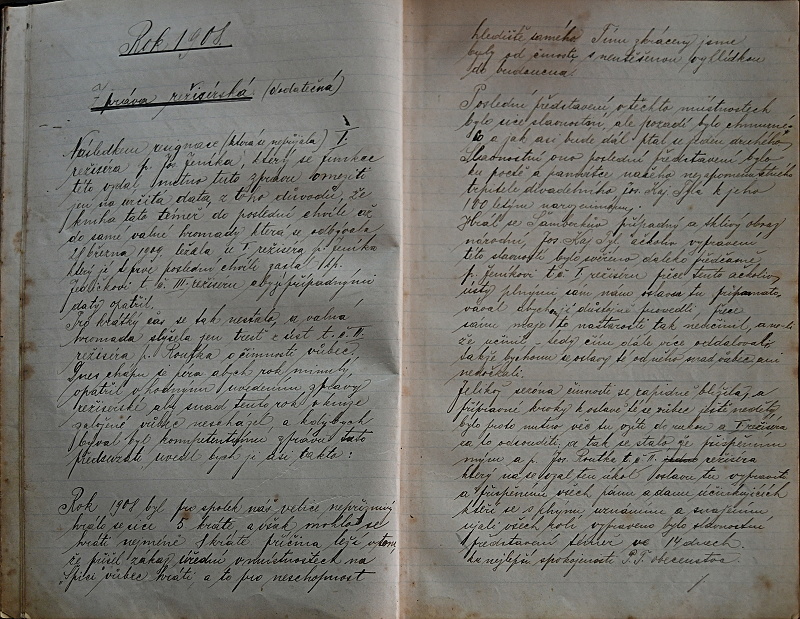 Rok 1908.
Zpráva režisérská (dodatečná)
Následkem resignace (která se nepřijala) I.
režiséra p. Jos. Jeníka, který se funkce
této vzdal nutno tuto zprávu omeziti
jen na určitá data, z toho důvodů, že
kniha tato téměř do poslední chvíle až
do samé valné hromady která se odbývala
28 března 1909. ležela u I režiséra p. Jeníka
který je teprve poslední chvíli zaslal p.
t. č. III. režiséru abych případnými
daty opatřil.
Pro krátký čas se tak nestalo, a valná
hromada slyšela jen tresť z úst t. č. II.
režiséra p. Roufka o činnosti vůbec.
Dnes chápu se pera abych rok minulý
opatřil vhodným uvedením zprávy
režisérské aby snad tento rok v knize
založené vůbec nescházel a kdybych
býval byl kompetentnímu zprávu tuto
předsevzíti uvedl bych ji asi takto:
Rok 1908 byl pro spolek náš velice nepříznivý
hrálo se sice 5 kráte, a však mohlo se
hráti nejméně kráte příčina leží v tom,
že přišel zákaz úřední v místnostech na
Špici vůbec hráti a to pro neschopnost
hlediště samého. Tím zkráceny jsme
byly od činnosti s neutěšenou vyhlídkou
do budoucna.
Poslední představení v těchto místnostech
bylo sice slavnostní, ale pozadí bylo chmurné
Co a jak asi bude dál ptal se jeden druhého.
Slavnostní ono poslední představení bylo
ku poctě a památce našeho nezapomenutelného
trpitele divadelního Jos. Kaj. Tyla k jeho
100 letým narozeninám.
Hrál se Šamberkův případný a tklivý obraz
národní, Jos. Kaj. Tyl ačkoliv vypravení
této slavnosti bylo svěřeno daleko předčasně
p. Jeníkovi t. č. I režiséru přece tento ačkoliv
ústy plnými sám nám oslavu tu připamato-
vával abychom ji důstojně provedli, přece
sám maje to na starosti tak neučinil, a nerci
že učiní - tedy čím dále více oddaloval
takže bychom se oslavy té od něho snad vůbec ani
nedočkali.
Jelikož sezóna činnosti se rapidně blížila, a
přípravné kroky k oslavě té se vůbec ještě neděly
bylo proto nutno věc tu vzíti do rukou a I režiséra
za to odsouditi, a tak se stalo že přispěním
mým a p. Jos. Roufka t. č. II. režiséra
který na se vzal ten úkol oslavu tu vypraviti
a přispěním všech pánů a dam účinkujících
kteří se s plným uznáním a snažením
ujali všech rolí vypraveno bylo slavnostní
představení téměř ve 14 dnech.
ku nejlepší spokojenosti P. T. obecenstva.